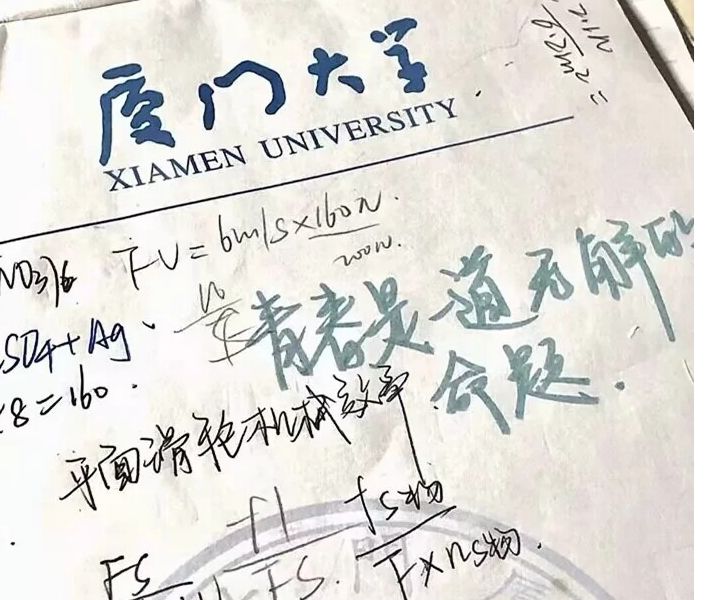 厦门大学
XIAMEN UNIVERSITY
FV = 6m/s × 160N
200W.
NO3)
SO4 + Ag
8 = 160.
青春是道无解的
命题.
平面滑轮机械效率
fl
FS
fs物
FS
F×ns物.